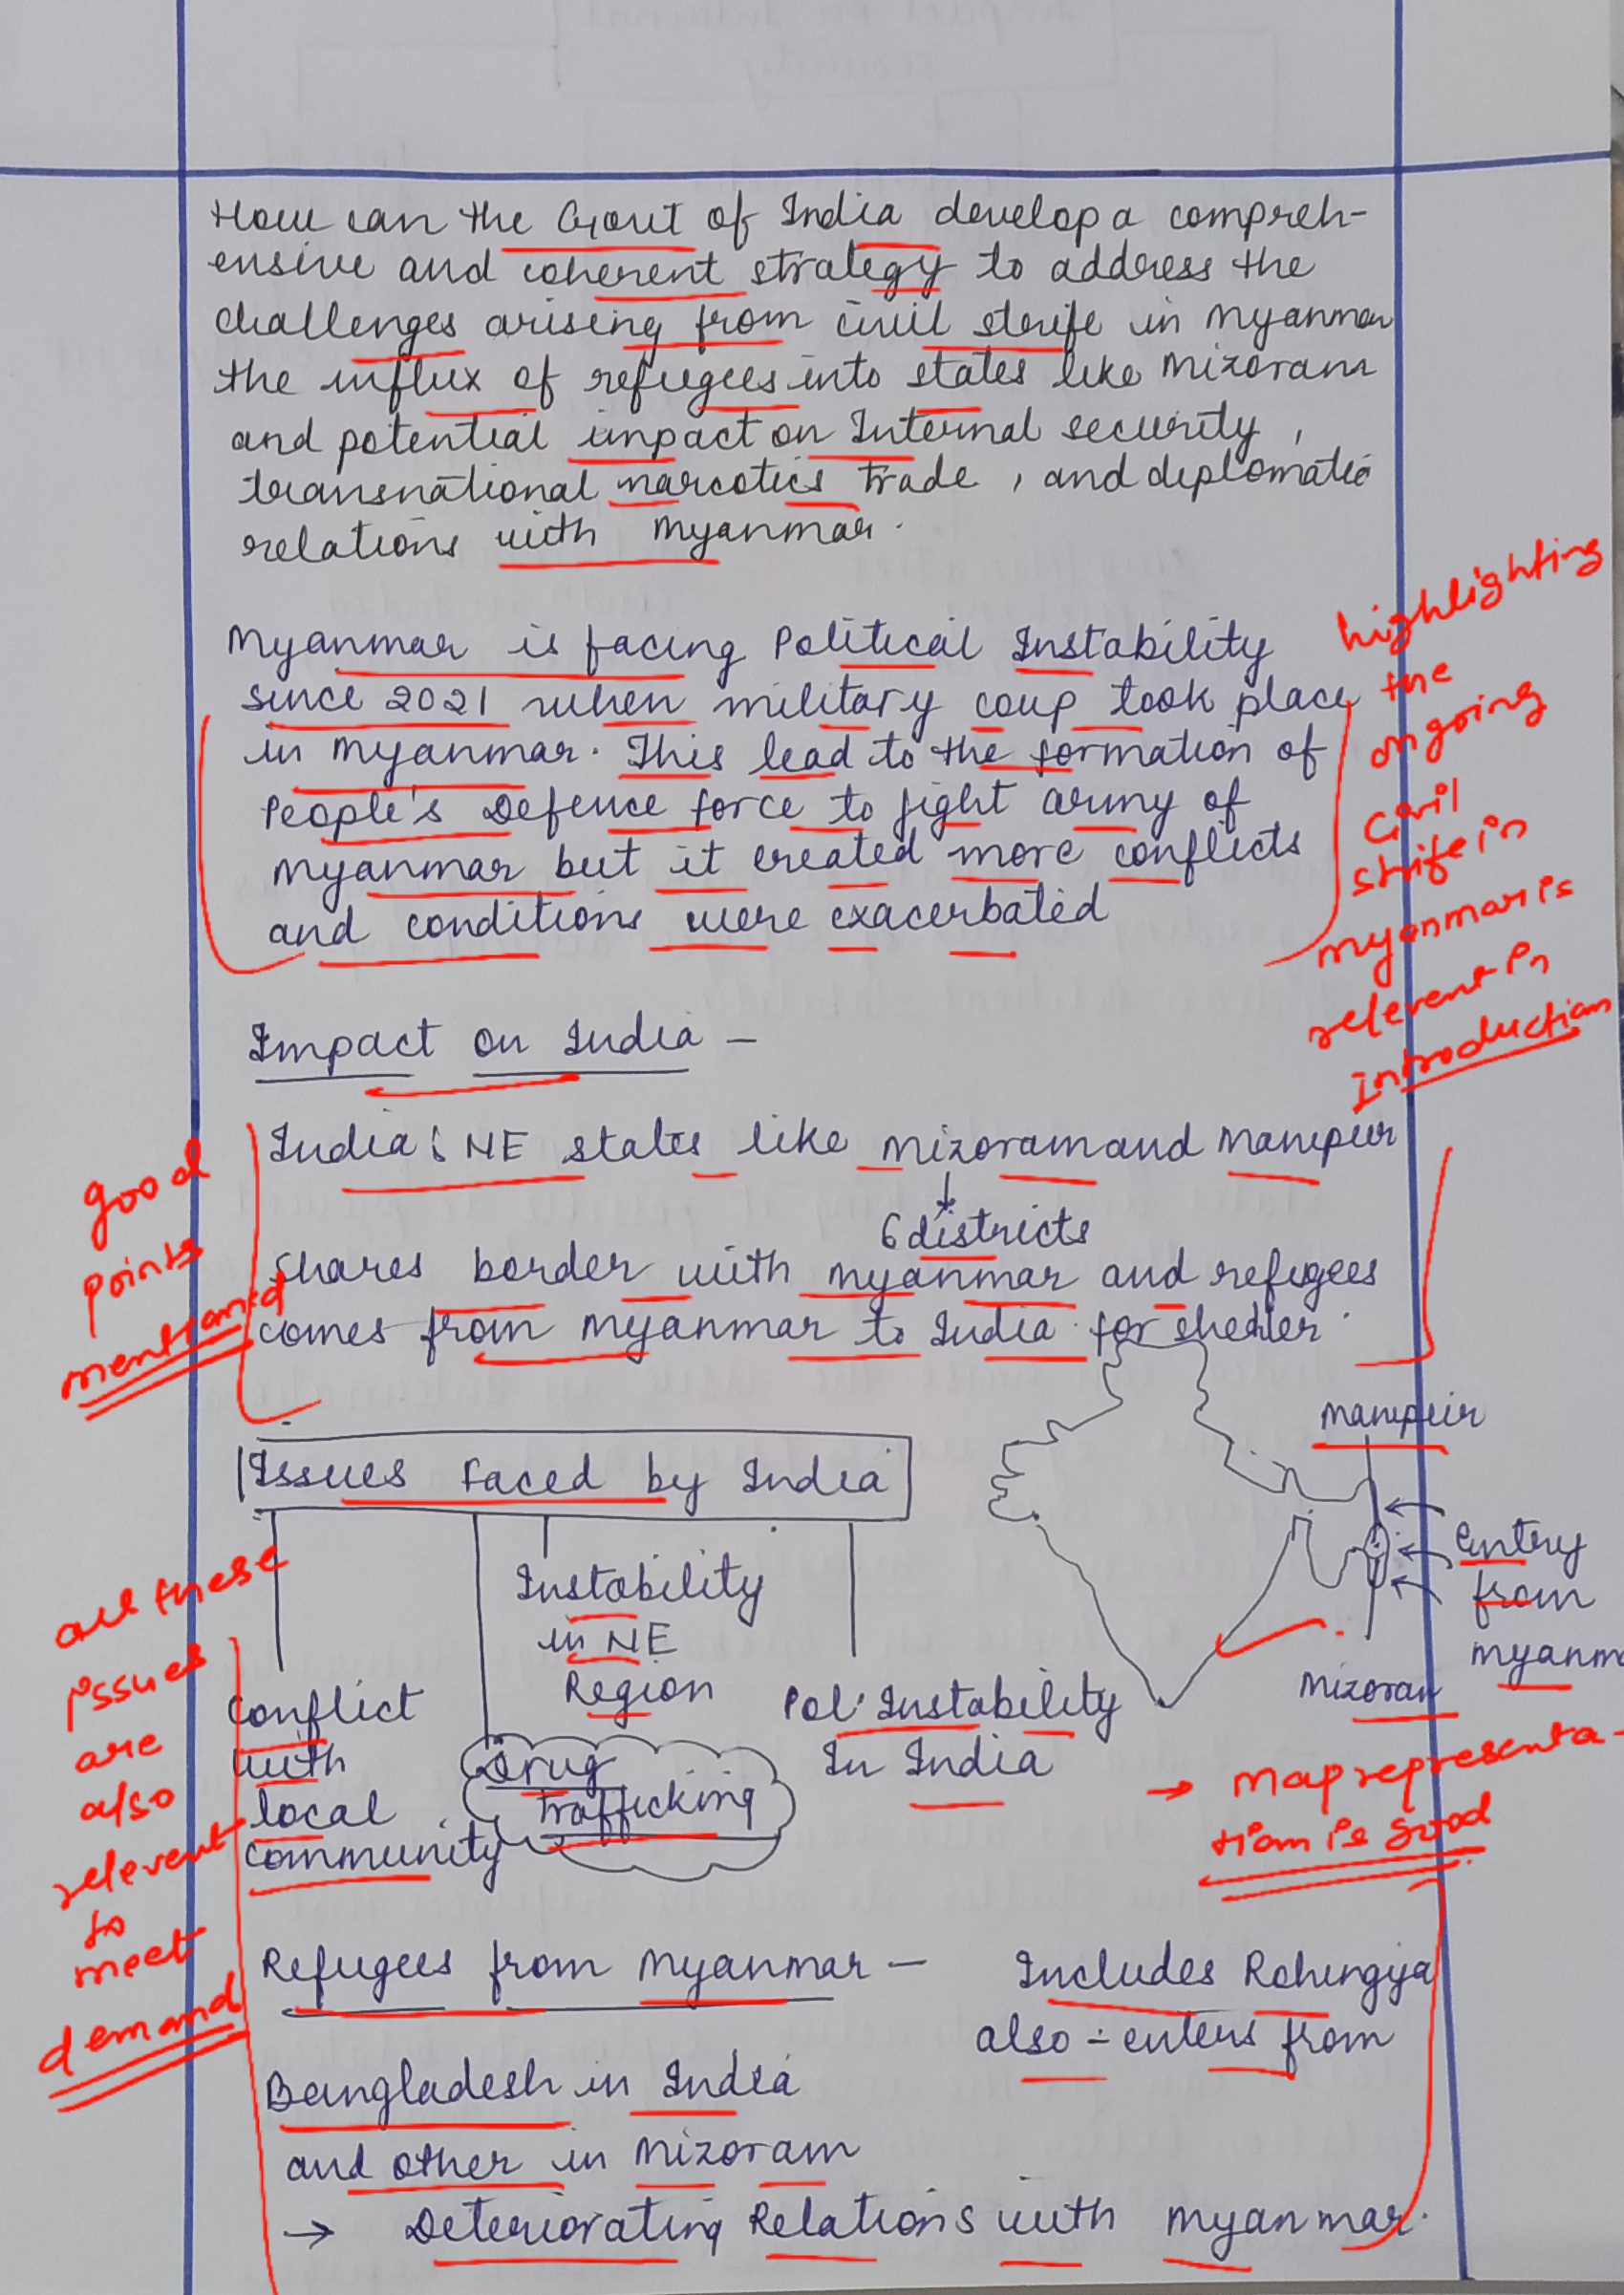 How can the Govt of India develop a compreh-
ensive and coherent strategy to address the
challenges arising from civil strife in Myanmar
the influx of refugees into states like Mizoram
and potential impact on Internal security,
transnational narcotics trade, and diplomatic
relations with Myanmar.
Myanmar is facing Political Instability
since 2021 when military coup took place
in Myanmar. This lead to the formation of
People's Defence force to fight army of
Myanmar but it created more conflicts
and conditions were exacerbated
highlighting
the
ongoing
Civil
strife in
myanmar is
relevent in
introduction
Impact on India -
India's NE states like Mizoram and Manipur
6 districts
shares border with Myanmar and refugees
comes from Myanmar to India for shelter.
good
points
mentioned
Issues Faced by India
Conflict
with
local
community
Drug
Trafficking
Instability
in NE
Region
Pol. Instability
In India
Manipur
Entry
from
Myanm
Mizoram
→ Map representa-
tion is good
all these
issues
are
also
relevent
to
meet
demand
Refugees from Myanmar - Includes Rohingya
also - enters from
Bangladesh in India
and other in Mizoram
→ Deteriorating Relations with Myanmar.